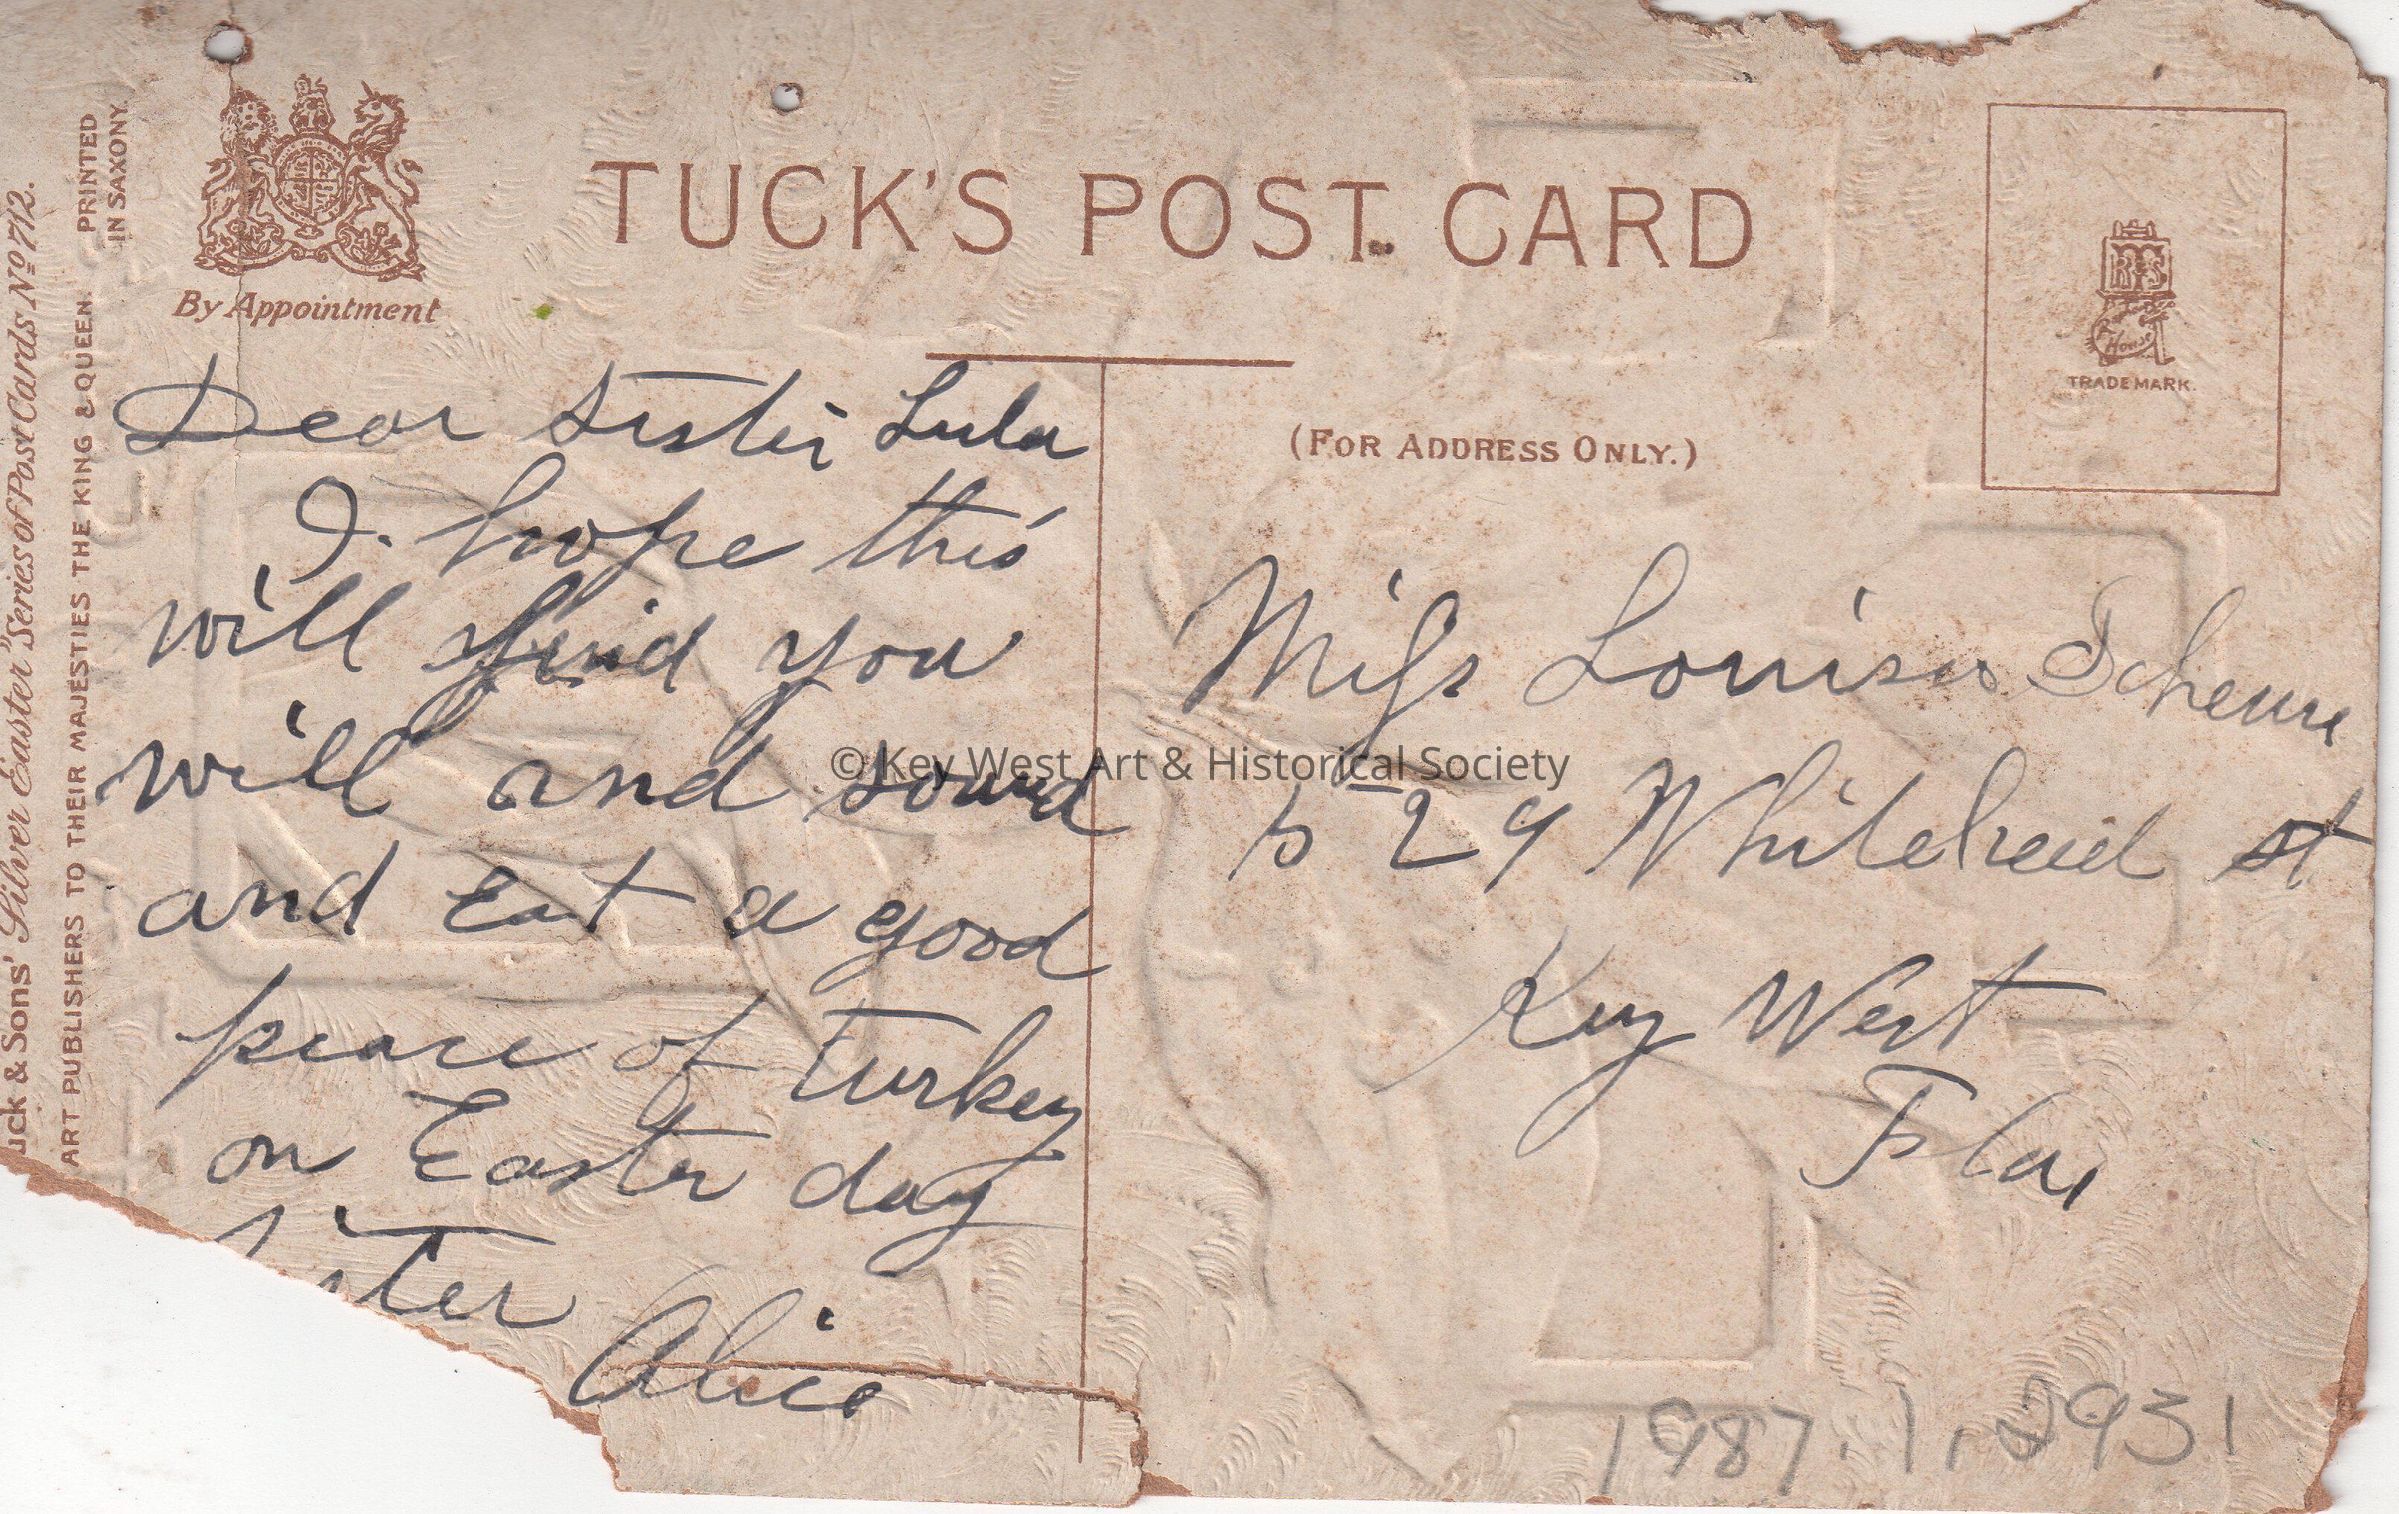 TUCK'S POST CARD
By Appointment
uck & Sons' Silver Easter" Series of Post Cards No 712.
ART PUBLISHERS TO THEIR MAJESTIES THE KING & QUEEN.
PRINTED
IN SAXONY.
TRADE MARK.
(FOR ADDRESS ONLY.)
Dear Sister Lula
I. hope this
will find you
will and sound
and Eat a good
of turkey
on Easter day
ster
Alice
Miss Louisa
529 st
Key West
Fla
© Key West Art & Historical Society
1987.1.2931